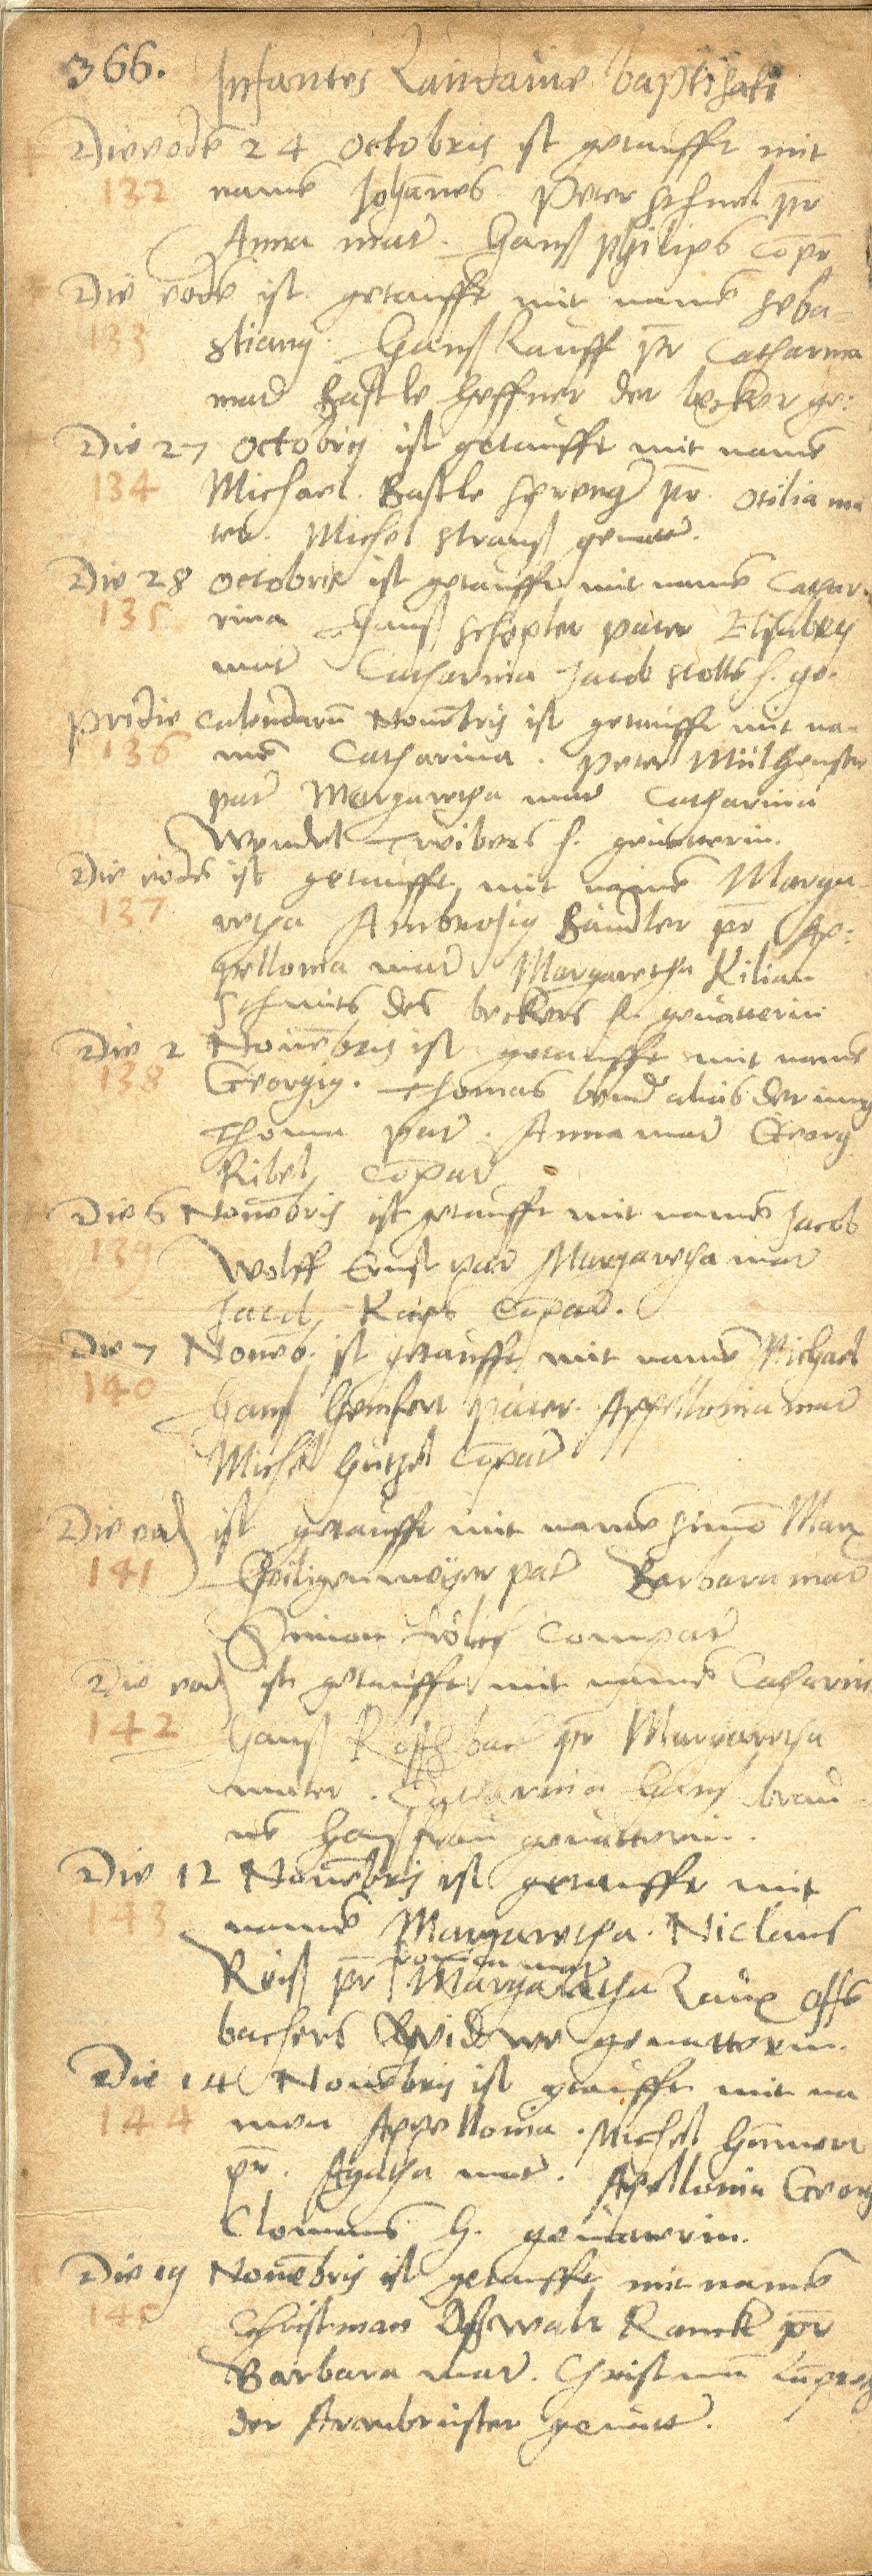 366. Infantes Landauiae baptisati
Die eode 24 octobris ist getaufft mit
132 name Johānes. Peter schnel pr̄
Anna mat. Hanß philips cōpr
Die eode ist getaufft mit name seba-
133 stiang. Hanß Kauff pr̄ Catharina
mat Bastle heffner der becker ge:
Die 27 octobris ist getaufft mit name
134 Michael. Bastle spreng pr̄. Otilia ma
ter. Michel strauß geuatt.
Die 28 octobris ist getaufft mit name Catha-
135 rina Hanß schopler pater Elisabeth
mat Catharina Jacob stolls h. ge.
pridie calendarū Nouēbris ist getaufft mit na-
136 me Catharina. Peter Mülheuser
pat Margaretha mat Catharina
Wendel weibers h. geuatterin.
Die eode ist getaufft mit name Marga-
137 retha Ambrosig Händler pr̄ Ap:
pellonia mat Margaretha Kilian
Schmits des beckers h. geuatterin
Die 2 Nouēbris ist getaufft mit name
138 Georgig. Thomas bend alias der iung
Thoma pat. Anna mat Georg
Ribel cōpat
Die 6 Nouēbris ist getaufft mit name Jacob
139 Wolff Ernst pat Margaretha mat
Jacob Kaps cōpat.
Die 7 Nouēb. ist getaufft mit name Michael
140 Hanß pater. Appellonia mat
Michel hetzel cōpat
Die eod ist getaufft mit name simō Marx
141 Heiligenmeyer pat Barbara mat
Simon frölich compat
Die eod ist getaufft mit name Catharin
142 Hanß Roschbach pr̄ Margaretha
mater. Catharina Hanß brau-
ne haußfrau geuatterin.
Die 12 Nouēbris ist getaufft mit
143 name Margaretha. Niclaus
Reiß pr̄ mat Margaretha Laux offe
bachers Widwe geuatterin.
Die 14 Nouēbris ist getaufft mit na
144 men Appellonia. Michel
pr̄. Agatha mat. Apellonia Georg
Clomans h. geuatterin.
Die 19 Nouēbris ist getaufft mit name
145 Christman Oswalt Ranck pr̄
Barbara mat. Christman
der Armbruster geuatt.